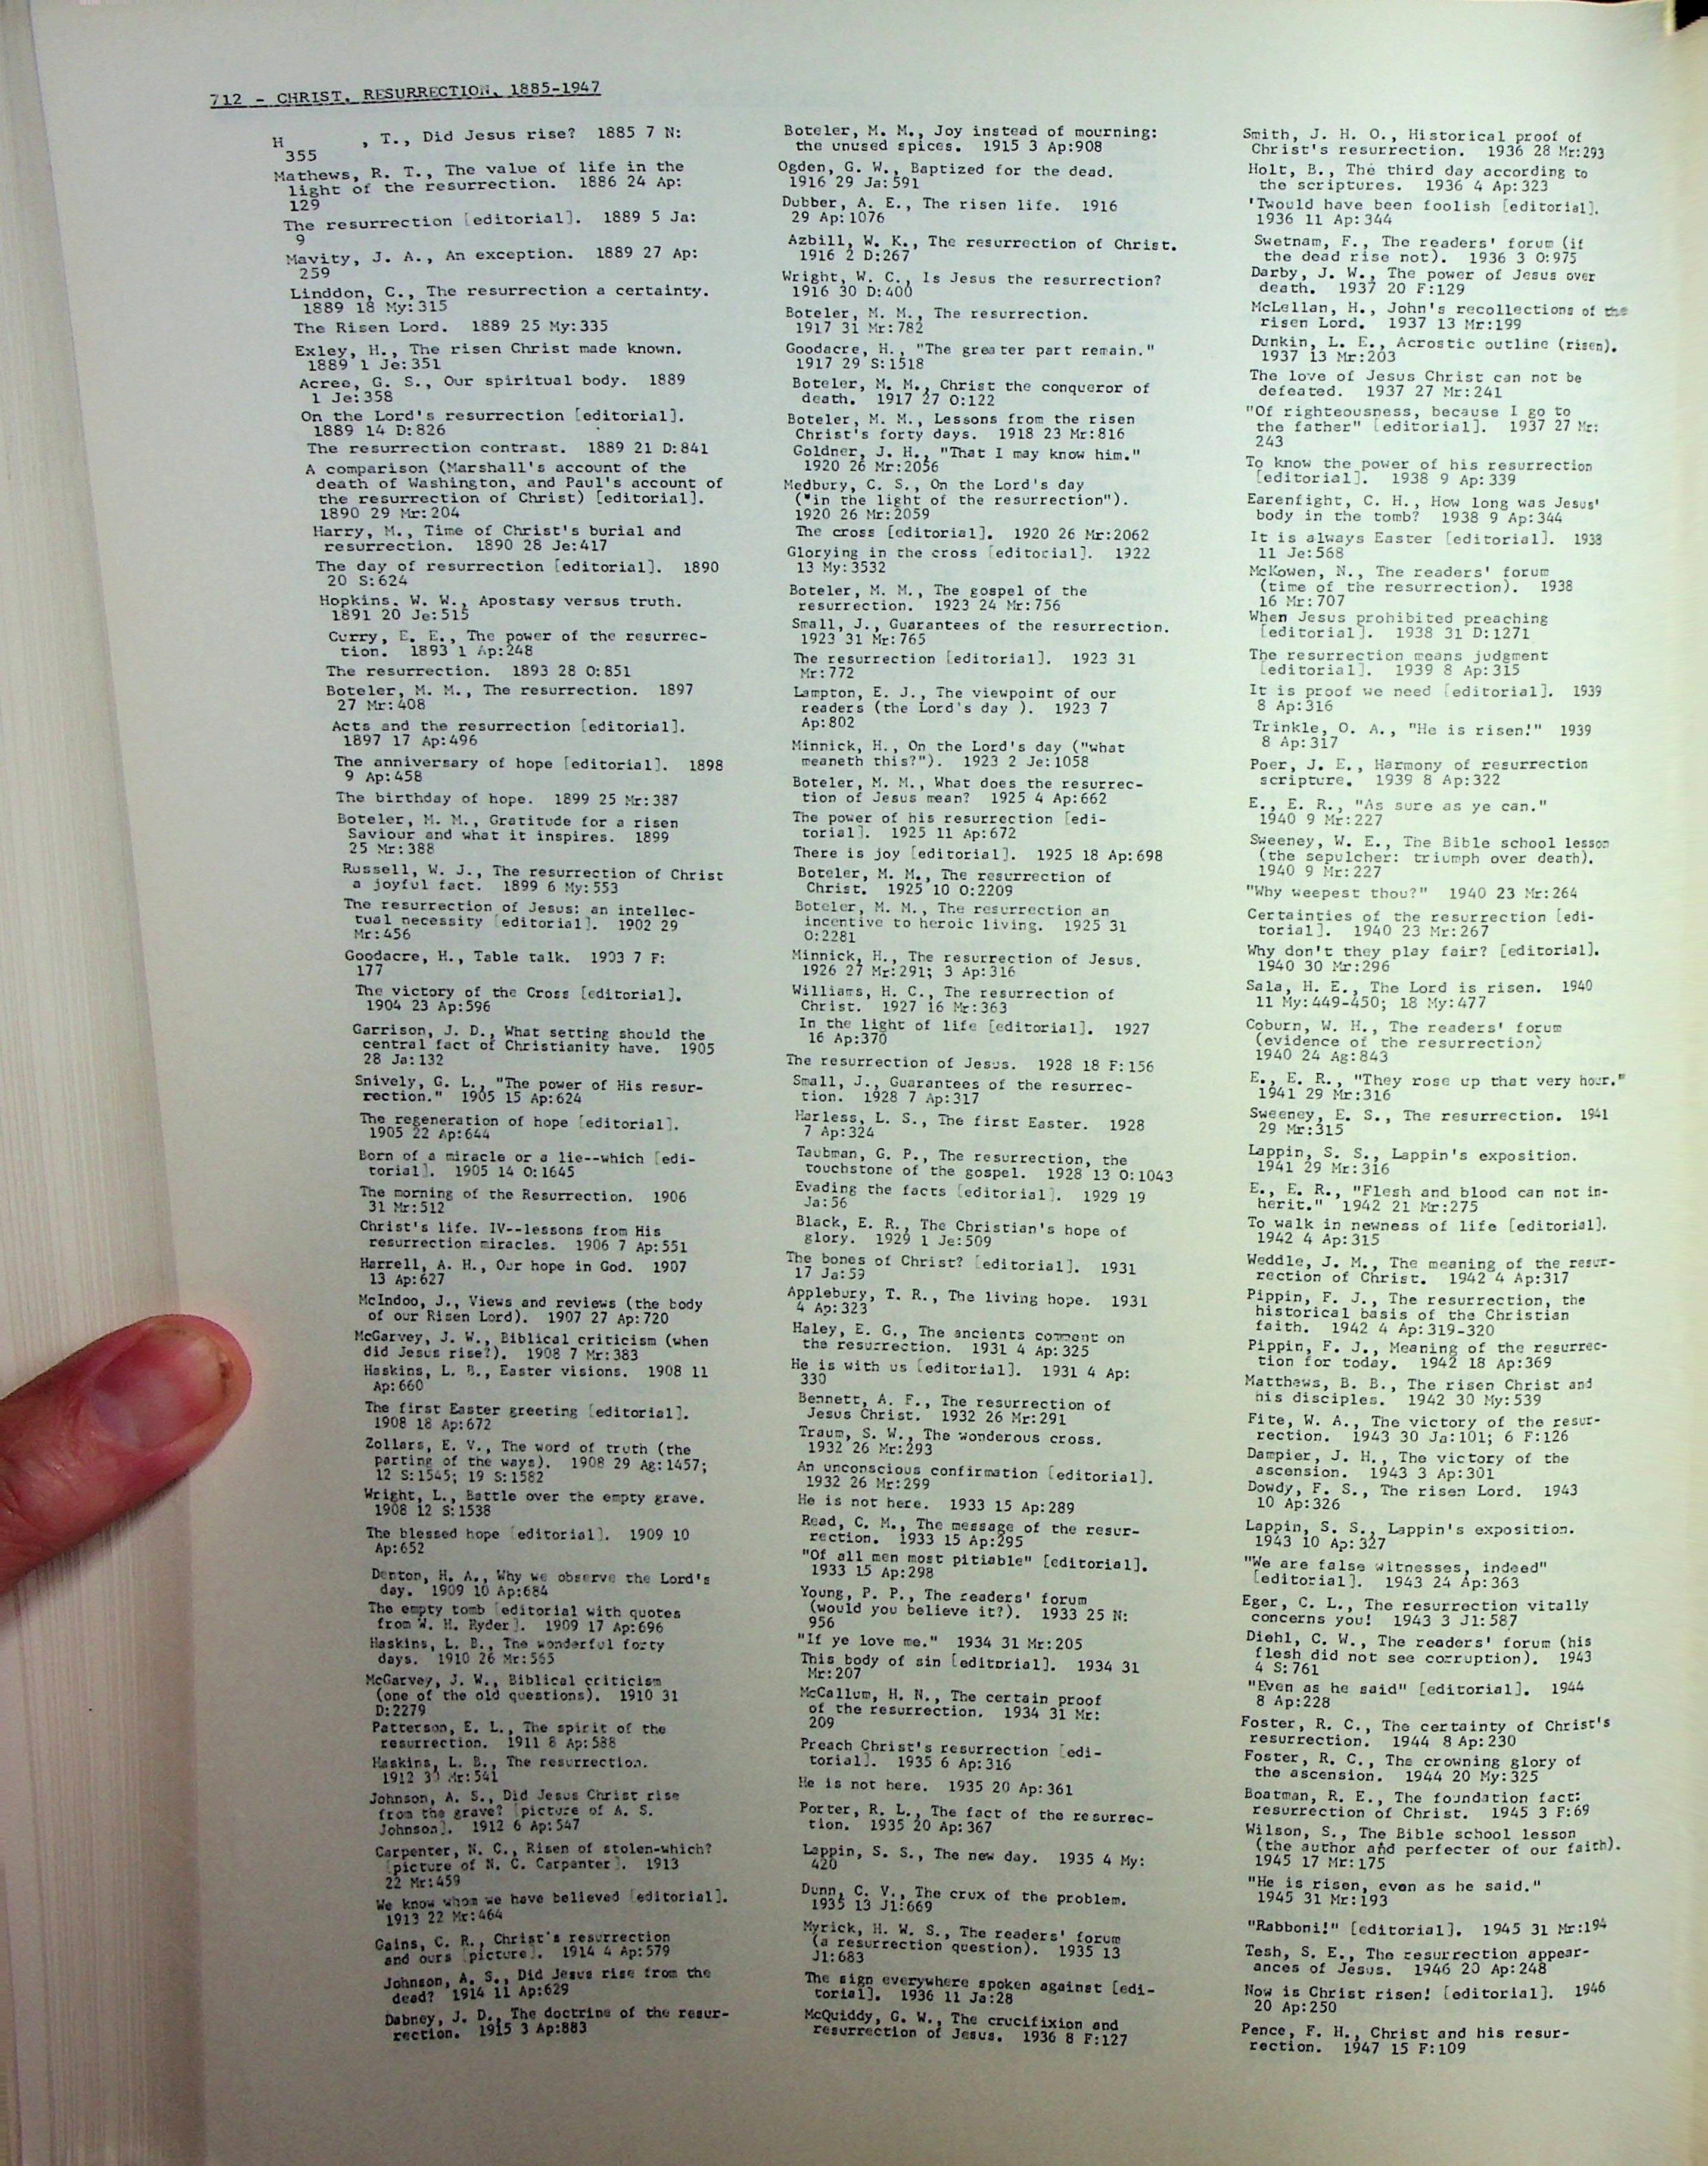 712 - CHRIST, RESURRECTION, 1885-1947
H , T., Did Jesus rise? 1885 7 N:
355
Mathews, R. T., The value of life in the
light of the resurrection. 1886 24 Ap:
129
The resurrection [editorial]. 1889 5 Ja:
9
Mavity, J. A., An exception. 1889 27 Ap:
259
Linddon, C., The resurrection a certainty.
1889 18 My:315
The Risen Lord. 1889 25 My:335
Exley, H., The risen Christ made known.
1889 1 Je:351
Acree, G. S., Our spiritual body. 1889
1 Je:358
On the Lord's resurrection [editorial].
1889 14 D:826
The resurrection contrast. 1889 21 D:841
A comparison (Marshall's account of the
death of Washington, and Paul's account of
the resurrection of Christ) [editorial].
1890 29 Mr:204
Harry, M., Time of Christ's burial and
resurrection. 1890 28 Je:417
The day of resurrection [editorial]. 1890
20 S:624
Hopkins, W. W., Apostasy versus truth.
1891 20 Je:515
Curry, E. E., The power of the resurrec-
tion. 1893 1 Ap:248
The resurrection. 1893 28 O:851
Boteler, M. M., The resurrection. 1897
27 Mr:408
Acts and the resurrection [editorial].
1897 17 Ap:496
The anniversary of hope [editorial]. 1898
9 Ap:458
The birthday of hope. 1899 25 Mr:387
Boteler, M. M., Gratitude for a risen
Saviour and what it inspires. 1899
25 Mr:388
Russell, W. J., The resurrection of Christ
a joyful fact. 1899 6 My:553
The resurrection of Jesus: an intellec-
tual necessity [editorial]. 1902 29
Mr:456
Goodacre, H., Table talk. 1903 7 F:
177
The victory of the Cross [editorial].
1904 23 Ap:596
Garrison, J. D., What setting should the
central fact of Christianity have. 1905
28 Ja:132
Snively, G. L., "The power of His resur-
rection." 1905 15 Ap:624
The regeneration of hope [editorial].
1905 22 Ap:644
Born of a miracle or a lie--which [edi-
torial]. 1905 14 O:1645
The morning of the Resurrection. 1906
31 Mr:512
Christ's life. IV--lessons from His
resurrection miracles. 1906 7 Ap:551
Harrell, A. H., Our hope in God. 1907
13 Ap:627
McIndoo, J., Views and reviews (the body
of our Risen Lord). 1907 27 Ap:720
McGarvey, J. W., Biblical criticism (when
did Jesus rise?). 1908 7 Mr:383
Haskins, L. B., Easter visions. 1908 11
Ap:660
The first Easter greeting [editorial].
1908 18 Ap:672
Zollars, E. V., The word of truth (the
parting of the ways). 1908 29 Ag:1457;
12 S:1545; 19 S:1582
Wright, L., Battle over the empty grave.
1908 12 S:1538
The blessed hope [editorial]. 1909 10
Ap:652
Denton, H. A., Why we observe the Lord's
day. 1909 10 Ap:684
The empty tomb [editorial with quotes
from W. H. Ryder]. 1909 17 Ap:696
Haskins, L. B., The wonderful forty
days. 1910 26 Mr:565
McGarvey, J. W., Biblical criticism
(one of the old questions). 1910 31
D:2279
Patterson, E. L., The spirit of the
resurrection. 1911 8 Ap:588
Haskins, L. B., The resurrection.
1912 30 Mr:541
Johnson, A. S., Did Jesus Christ rise
from the grave? [picture of A. S.
Johnson]. 1912 6 Ap:547
Carpenter, N. C., Risen of stolen-which?
[picture of N. C. Carpenter]. 1913
22 Mr:459
We know whom we have believed [editorial].
1913 22 Mr:464
Gains, C. R., Christ's resurrection
and ours [picture]. 1914 4 Ap:579
Johnson, A. S., Did Jesus rise from the
dead? 1914 11 Ap:629
Dabney, J. D., The doctrine of the resur-
rection. 1915 3 Ap:883
Boteler, M. M., Joy instead of mourning:
the unused spices. 1915 3 Ap:908
Ogden, G. W., Baptized for the dead.
1916 29 Ja:591
Dubber, A. E., The risen life. 1916
29 Ap:1076
Azbill, W. K., The resurrection of Christ.
1916 2 D:267
Wright, W. C., Is Jesus the resurrection?
1916 30 D:400
Boteler, M. M., The resurrection.
1917 31 Mr:782
Goodacre, H., "The greater part remain."
1917 29 S:1518
Boteler, M. M., Christ the conqueror of
death. 1917 27 O:122
Boteler, M. M., Lessons from the risen
Christ's forty days. 1918 23 Mr:816
Goldner, J. H., "That I may know him."
1920 26 Mr:2056
Medbury, C. S., On the Lord's day
("in the light of the resurrection").
1920 26 Mr:2059
The cross [editorial]. 1920 26 Mr:2062
Glorying in the cross [editorial]. 1922
13 My:3532
Boteler, M. M., The gospel of the
resurrection. 1923 24 Mr:756
Small, J., Guarantees of the resurrection.
1923 31 Mr:765
The resurrection [editorial]. 1923 31
Mr:772
Lampton, E. J., The viewpoint of our
readers (the Lord's day ). 1923 7
Ap:802
Minnick, H., On the Lord's day ("what
meaneth this?"). 1923 2 Je:1058
Boteler, M. M., What does the resurrec-
tion of Jesus mean? 1925 4 Ap:662
The power of his resurrection [edi-
torial]. 1925 11 Ap:672
There is joy [editorial]. 1925 18 Ap:698
Boteler, M. M., The resurrection of
Christ. 1925 10 O:2209
Boteler, M. M., The resurrection an
incentive to heroic living. 1925 31
O:2281
Minnick, H., The resurrection of Jesus.
1926 27 Mr:291; 3 Ap:316
Williams, H. C., The resurrection of
Christ. 1927 16 Mr:363
In the light of life [editorial]. 1927
16 Ap:370
The resurrection of Jesus. 1928 18 F:156
Small, J., Guarantees of the resurrec-
tion. 1928 7 Ap:317
Harless, L. S., The first Easter. 1928
7 Ap:324
Taubman, G. P., The resurrection, the
touchstone of the gospel. 1928 13 O:1043
Evading the facts [editorial]. 1929 19
Ja:56
Black, E. R., The Christian's hope of
glory. 1929 1 Je:509
The bones of Christ? [editorial]. 1931
17 Ja:59
Applebury, T. R., The living hope. 1931
4 Ap:323
Haley, E. G., The ancients comment on
the resurrection. 1931 4 Ap:325
He is with us [editorial]. 1931 4 Ap:
330
Bennett, A. F., The resurrection of
Jesus Christ. 1932 26 Mr:291
Traum, S. W., The wonderous cross.
1932 26 Mr:293
An unconscious confirmation [editorial].
1932 26 Mr:299
He is not here. 1933 15 Ap:289
Read, C. M., The message of the resur-
rection. 1933 15 Ap:295
"Of all men most pitiable" [editorial].
1933 15 Ap:298
Young, P. P., The readers' forum
(would you believe it?). 1933 25 N:
956
"If ye love me." 1934 31 Mr:205
This body of sin [editorial]. 1934 31
Mr:207
McCallum, H. N., The certain proof
of the resurrection. 1934 31 Mr:
209
Preach Christ's resurrection [edi-
torial]. 1935 6 Ap:316
He is not here. 1935 20 Ap:361
Porter, R. L., The fact of the resurrec-
tion. 1935 20 Ap:367
Lappin, S. S., The new day. 1935 4 My:
420
Dunn, C. V., The crux of the problem.
1935 13 Jl:669
Myrick, H. W. S., The readers' forum
(a resurrection question). 1935 13
Jl:683
The sign everywhere spoken against [edi-
torial]. 1936 11 Ja:28
McQuiddy, G. W., The crucifixion and
resurrection of Jesus. 1936 8 F:127
Smith, J. H. O., Historical proof of
Christ's resurrection. 1936 28 Mr:293
Holt, B., The third day according to
the scriptures. 1936 4 Ap:323
'Twould have been foolish [editorial].
1936 11 Ap:344
Swetnam, F., The readers' forum (if
the dead rise not). 1936 3 O:975
Darby, J. W., The power of Jesus over
death. 1937 20 F:129
McLellan, H., John's recollections of the
risen Lord. 1937 13 Mr:199
Dunkin, L. E., Acrostic outline (risen).
1937 13 Mr:203
The love of Jesus Christ can not be
defeated. 1937 27 Mr:241
"Of righteousness, because I go to
the father" [editorial]. 1937 27 Mr:
243
To know the power of his resurrection
[editorial]. 1938 9 Ap:339
Earenfight, C. H., How long was Jesus'
body in the tomb? 1938 9 Ap:344
It is always Easter [editorial]. 1938
11 Je:568
McKowen, N., The readers' forum
(time of the resurrection). 1938
16 Mr:707
When Jesus prohibited preaching
[editorial]. 1938 31 D:1271
The resurrection means judgment
[editorial]. 1939 8 Ap:315
It is proof we need [editorial]. 1939
8 Ap:316
Trinkle, O. A., "He is risen!" 1939
8 Ap:317
Poer, J. E., Harmony of resurrection
scripture. 1939 8 Ap:322
E., E. R., "As sure as ye can."
1940 9 Mr:227
Sweeney, W. E., The Bible school lesson
(the sepulcher: triumph over death).
1940 9 Mr:227
"Why weepest thou?" 1940 23 Mr:264
Certainties of the resurrection [edi-
torial]. 1940 23 Mr:267
Why don't they play fair? [editorial].
1940 30 Mr:296
Sala, H. E., The Lord is risen. 1940
11 My:449-450; 18 My:477
Coburn, W. H., The readers' forum
(evidence of the resurrection)
1940 24 Ag:843
E., E. R., "They rose up that very hour."
1941 29 Mr:316
Sweeney, E. S., The resurrection. 1941
29 Mr:315
Lappin, S. S., Lappin's exposition.
1941 29 Mr:316
E., E. R., "Flesh and blood can not in-
herit." 1942 21 Mr:275
To walk in newness of life [editorial].
1942 4 Ap:315
Weddle, J. M., The meaning of the resur-
rection of Christ. 1942 4 Ap:317
Pippin, F. J., The resurrection, the
historical basis of the Christian
faith. 1942 4 Ap:319-320
Pippin, F. J., Meaning of the resurrec-
tion for today. 1942 18 Ap:369
Matthews, B. B., The risen Christ and
his disciples. 1942 30 My:539
Fite, W. A., The victory of the resur-
rection. 1943 30 Ja:101; 6 F:126
Dampier, J. H., The victory of the
ascension. 1943 3 Ap:301
Dowdy, F. S., The risen Lord. 1943
10 Ap:326
Lappin, S. S., Lappin's exposition.
1943 10 Ap:327
"We are false witnesses, indeed"
[editorial]. 1943 24 Ap:363
Eger, C. L., The resurrection vitally
concerns you! 1943 3 Jl:587
Diehl, C. W., The readers' forum (his
flesh did not see corruption). 1943
4 S:761
"Even as he said" [editorial]. 1944
8 Ap:228
Foster, R. C., The certainty of Christ's
resurrection. 1944 8 Ap:230
Foster, R. C., The crowning glory of
the ascension. 1944 20 My:325
Boatman, R. E., The foundation fact:
resurrection of Christ. 1945 3 F:69
Wilson, S., The Bible school lesson
(the author and perfecter of our faith).
1945 17 Mr:175
"He is risen, even as he said."
1945 31 Mr:193
"Rabboni!" [editorial]. 1945 31 Mr:194
Tesh, S. E., The resurrection appear-
ances of Jesus. 1946 20 Ap:248
Now is Christ risen! [editorial]. 1946
20 Ap:250
Pence, F. H., Christ and his resur-
rection. 1947 15 F:109